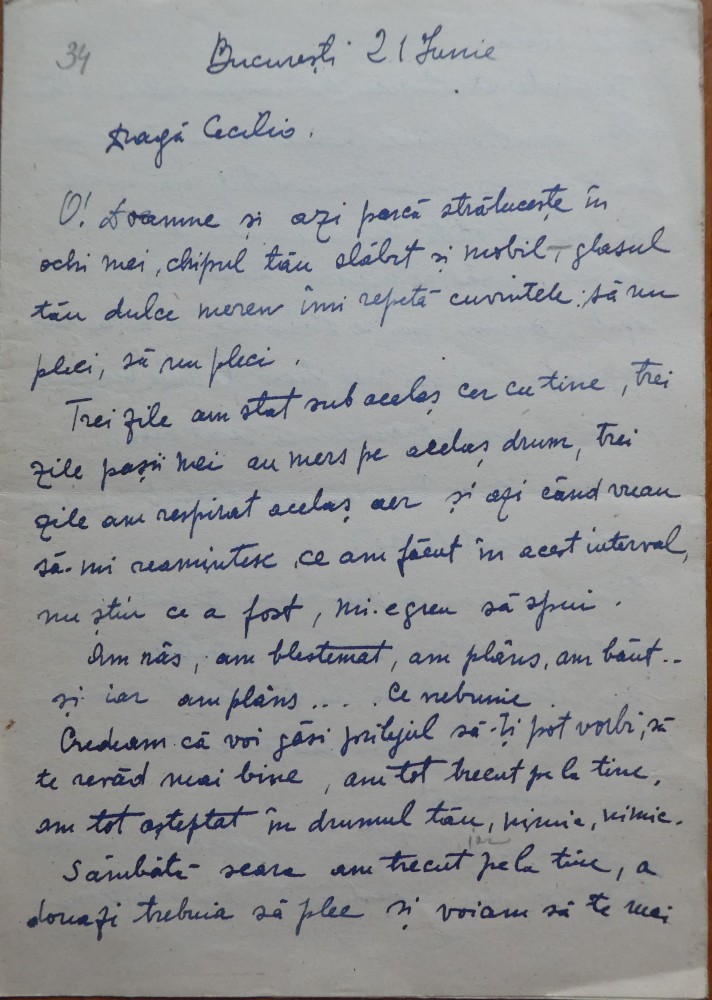 34
București 21 Iunie
Dragă Cecilio.
O! Doamne și azi parcă strălucește în
ochi mei, chipul tău slăbit și mobil, glasul
tău dulce mereu îmi repetă cuvintele: să nu
pleci, să nu pleci.
Trei zile am stat sub acelaș cer cu tine, trei
zile pașii mei au mers pe acelaș drum, trei
zile am respirat acelaș aer și azi când vreau
să-mi reamintesc, ce am făcut în acest interval,
nu știu ce a fost, mi-e greu să spui.
Am râs, am blestemat, am plâns, am băut..
și iar am plâns.... Ce nebunie.
Credeam că voi găsi prilejul să-ți pot vorbi, să
te revăd mai bine, am tot trecut pe la tine,
am tot așteptat în drumul tău, nimic, nimic.
iar
Sâmbătă seara am trecut pe la tine, a
doua zi trebuia să plec și voiam să te mai